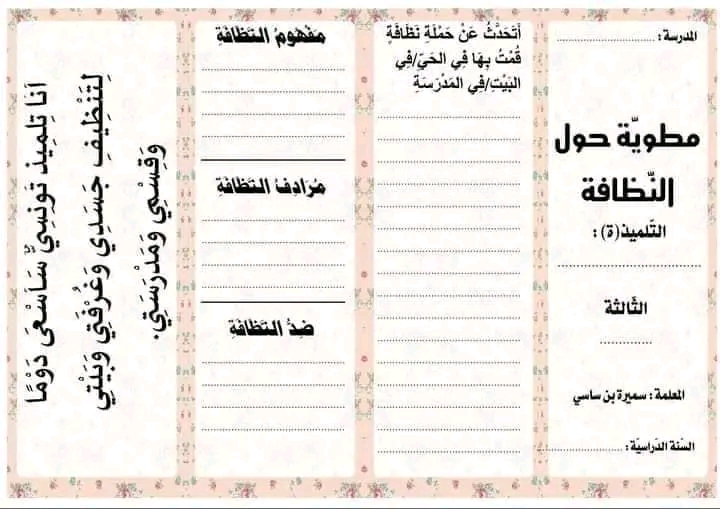 المدرسة : ..............................
مطويّة حول
النّظافة
التّلميذ(ة) :
..............................
الثّالثة
.............
المعلمة : سميرة بن ساسي
السّنة الدّراسيّة : ..............................
أَتَحَدَّثُ عَنْ حَمْلَةِ نَظَافَةٍ
قُمْتُ بِهَا فِي الحَيِّ/فِي
البَيْتِ/فِي المَدْرَسَةِ
مَفْهُومُ النَّظَافَةِ
مُرَادِفُ النَّظَافَةِ
ضِدُّ النَّظَافَةِ
أَنَا تِلْمِيذٌ تُونِسِيٌّ سَأَسْعَى دَوْمًا
لِتَنْظِيفِ جَسَدِي وَغُرْفَتِي وَبَيْتِي
وَقِسْمِي وَمَدْرَسَتِي.